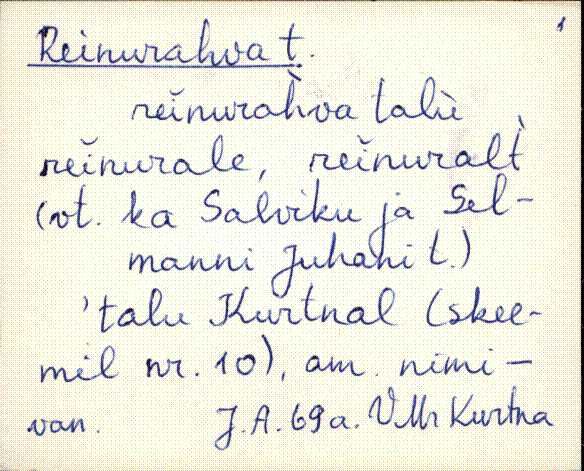 Reinurahva t.
reĭnurahva talù
reĭnurale, reĭnuralt̀
(vt. ka Salviku ja Sel-
manni Juhani t.)
'talu Kurtnal (skee-
mil nr. 10), am. nimi —
van. J.A. 69 a. VMr Kurtna